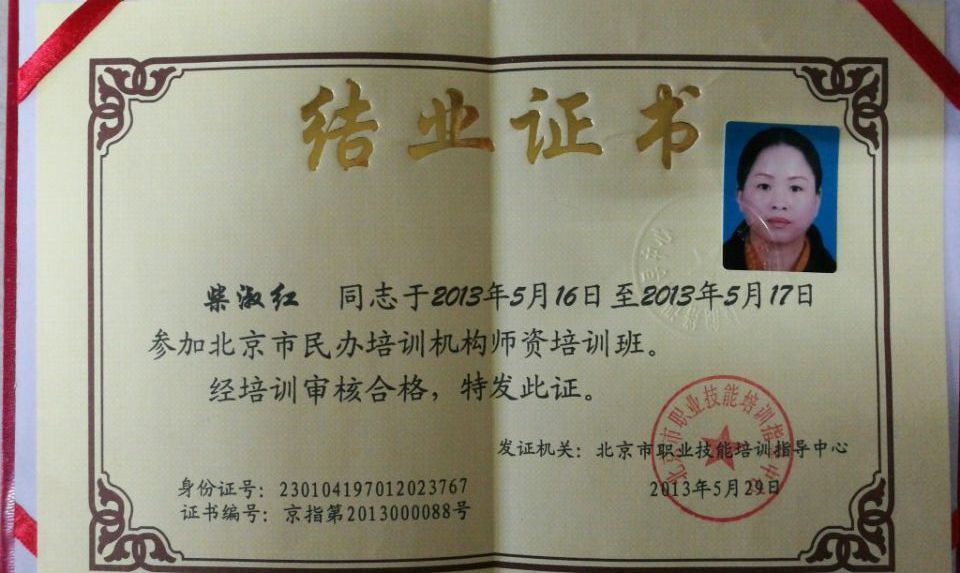 结业证书
柴淑红 同志于2013年5月16日至2013年5月17日
参加北京市民办培训机构师资培训班。
经培训审核合格，特发此证。
发证机关：北京市职业技能培训指导中心
2013年5月29日
身份证号：230104197012023767
证书编号：京指第2013000088号
北京市职业技能培训指导中心